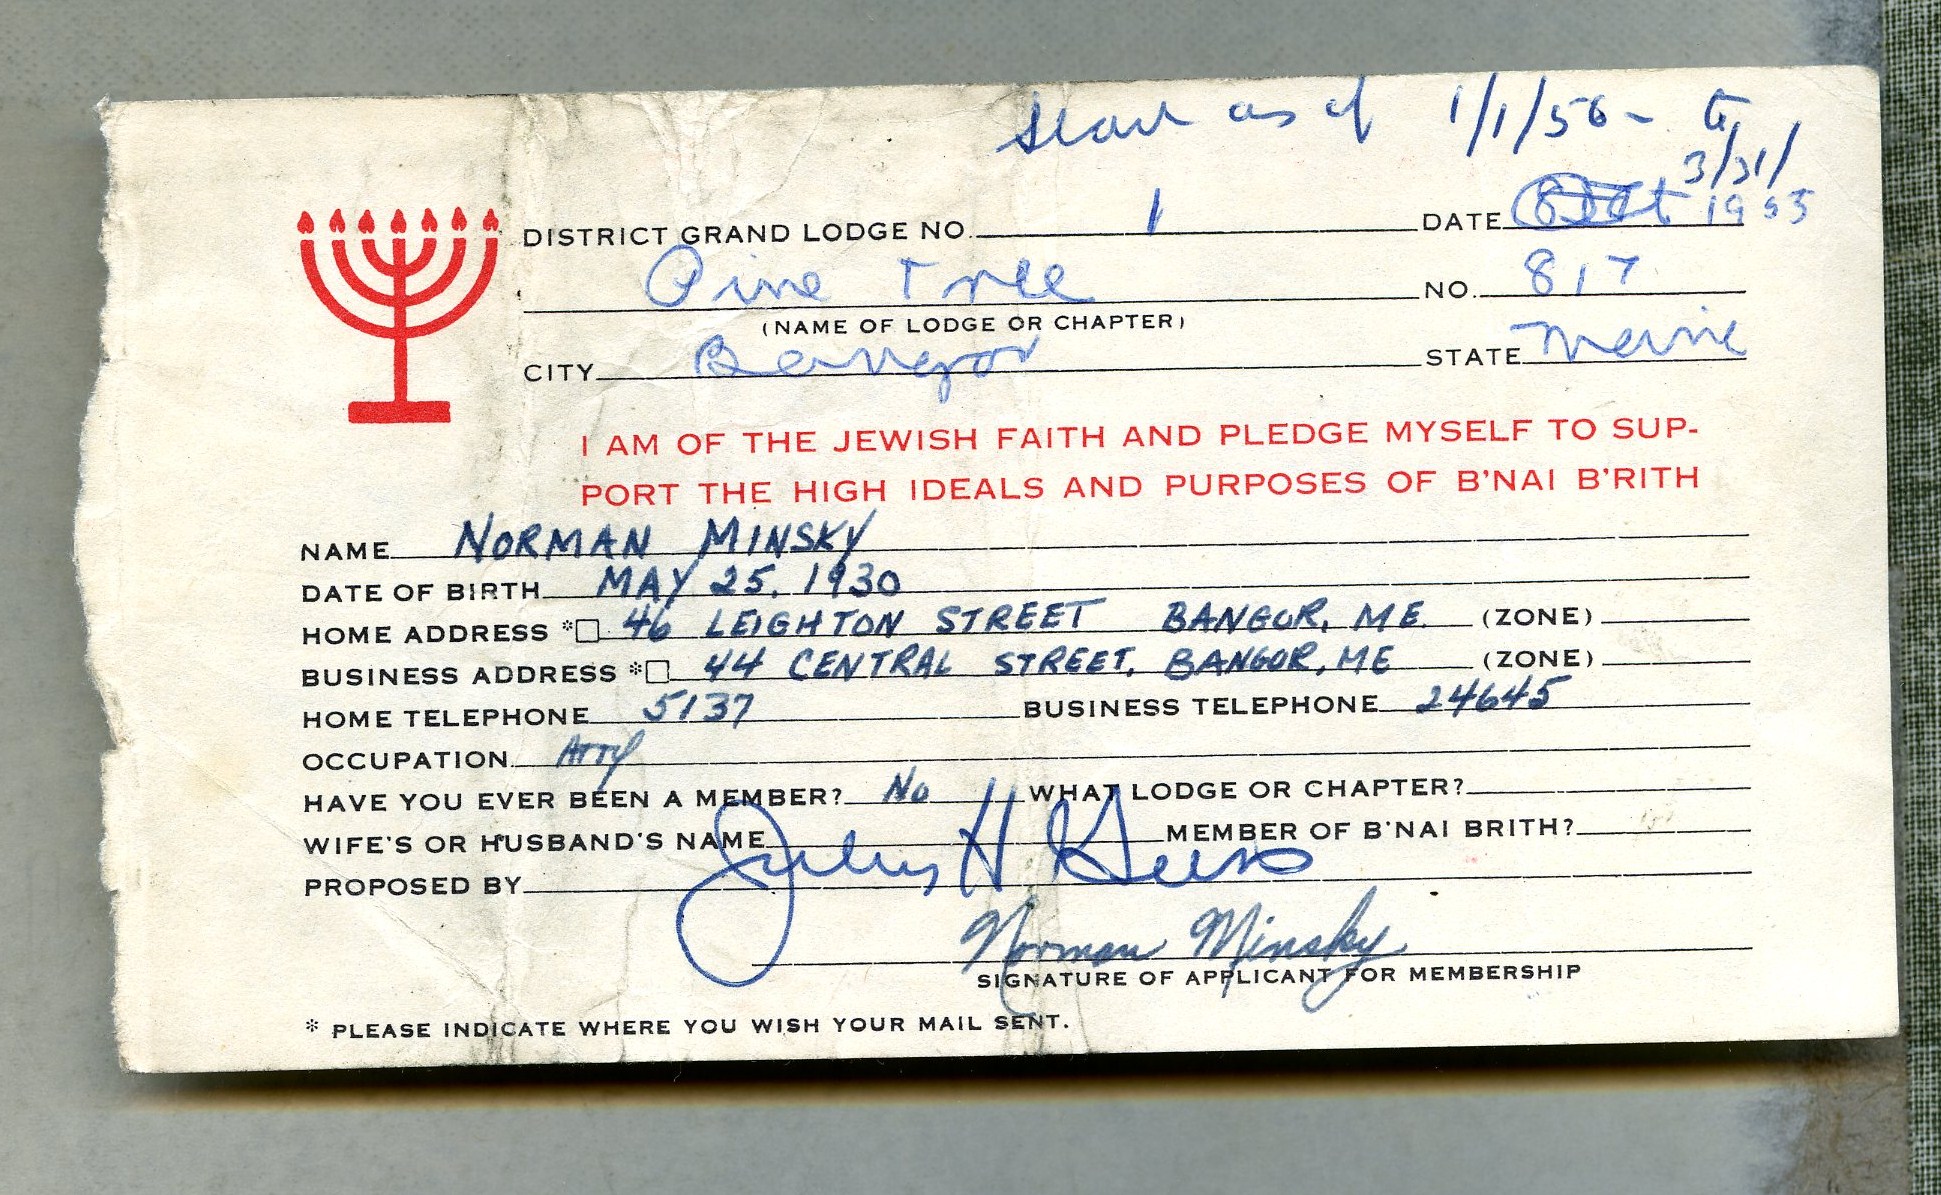 Start as of 1/1/56 - to
3/31/
DISTRICT GRAND LODGE NO. 1 DATE Oct 1955
Pine Tree NO. 817
(NAME OF LODGE OR CHAPTER)
CITY Bangor STATE Maine
I AM OF THE JEWISH FAITH AND PLEDGE MYSELF TO SUP-
PORT THE HIGH IDEALS AND PURPOSES OF B'NAI B'RITH
NAME NORMAN MINSKY
DATE OF BIRTH MAY 25, 1930
HOME ADDRESS *□ 46 LEIGHTON STREET BANGOR, ME. (ZONE)
BUSINESS ADDRESS *□ 44 CENTRAL STREET, BANGOR, ME (ZONE)
HOME TELEPHONE 5137 BUSINESS TELEPHONE 24645
OCCUPATION Atty
HAVE YOU EVER BEEN A MEMBER? No WHAT LODGE OR CHAPTER?
WIFE'S OR HUSBAND'S NAME MEMBER OF B'NAI BRITH?
PROPOSED BY Julius H
Norman Minsky
SIGNATURE OF APPLICANT FOR MEMBERSHIP
* PLEASE INDICATE WHERE YOU WISH YOUR MAIL SENT.